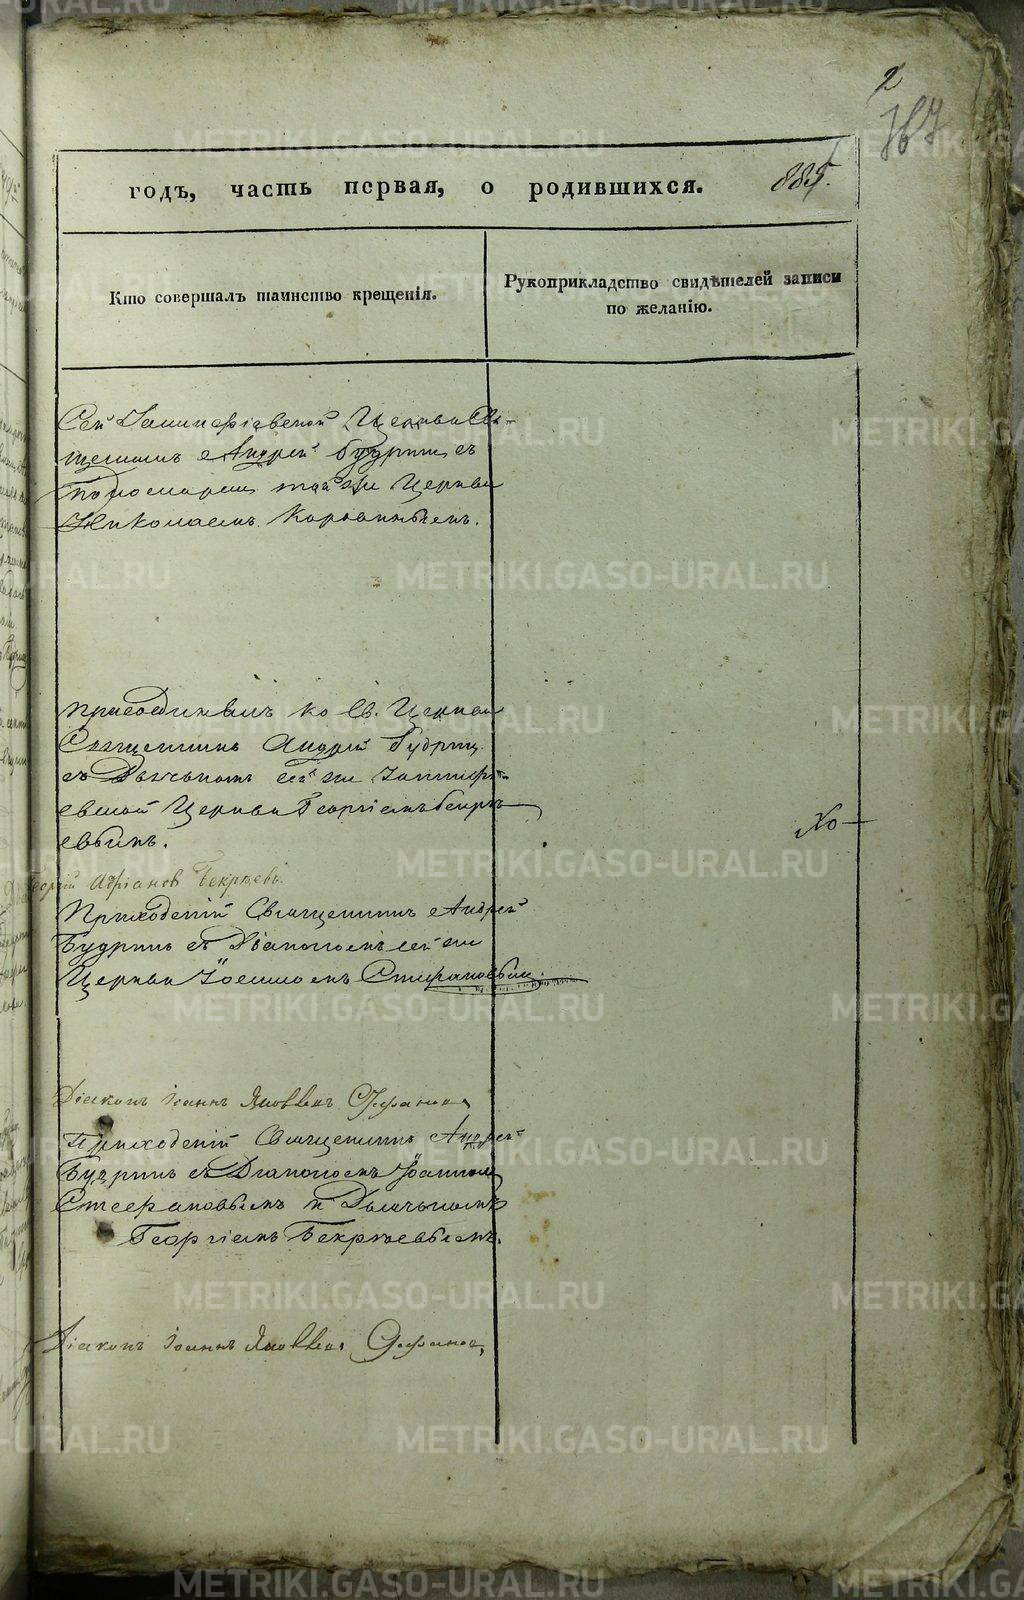 2
годъ, часть первая, о родившихся. 885.
Кто совершалъ таинство крещенія.
Рукоприкладство свидѣтелей записи
по желанію.
Сей Церкви Свя-
щенникъ Андрей Будринъ съ
Пономаремъ той же Церкви
Николаемъ
присоединилъ ко Св. Церкви
Священникъ Андрей Будринъ
съ Дьячькомъ сей же
евской Церкви Георгіемъ Бекрѣ
евымъ.
Георгій Адріановъ Бекрѣевъ.
Приходскій Священникъ Андрей
Будринъ съ Діакономъ сей же
Церкви Іоанномъ Стефановымъ.
Діаконъ Іоаннъ Яковлевъ Стефановъ
Приходскій Священникъ Андрей
Будринъ съ Діакономъ Іоанномъ
Стефановымъ и Дьячькомъ
Георгіемъ Бекрѣевымъ.
Діаконъ Іоаннъ Яковлевъ Стефановъ
METRIKI.GASO-URAL.RU